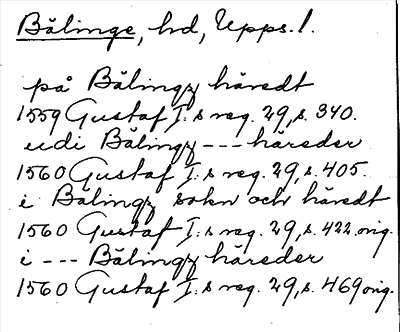 Bälinge, hd, Upps. l.
på Bälingz häredt
1559 Gustaf I:s reg. 29, s. 340.
udi Bälingz --- häreder
1560 Gustaf I:s reg. 29, s. 405.
i Bälingz sokn och häredt
1560 Gustaf I:s reg. 29, s. 422 orig.
i --- Bälingz häreder
1560 Gustaf I:s reg. 29, s. 469 orig.